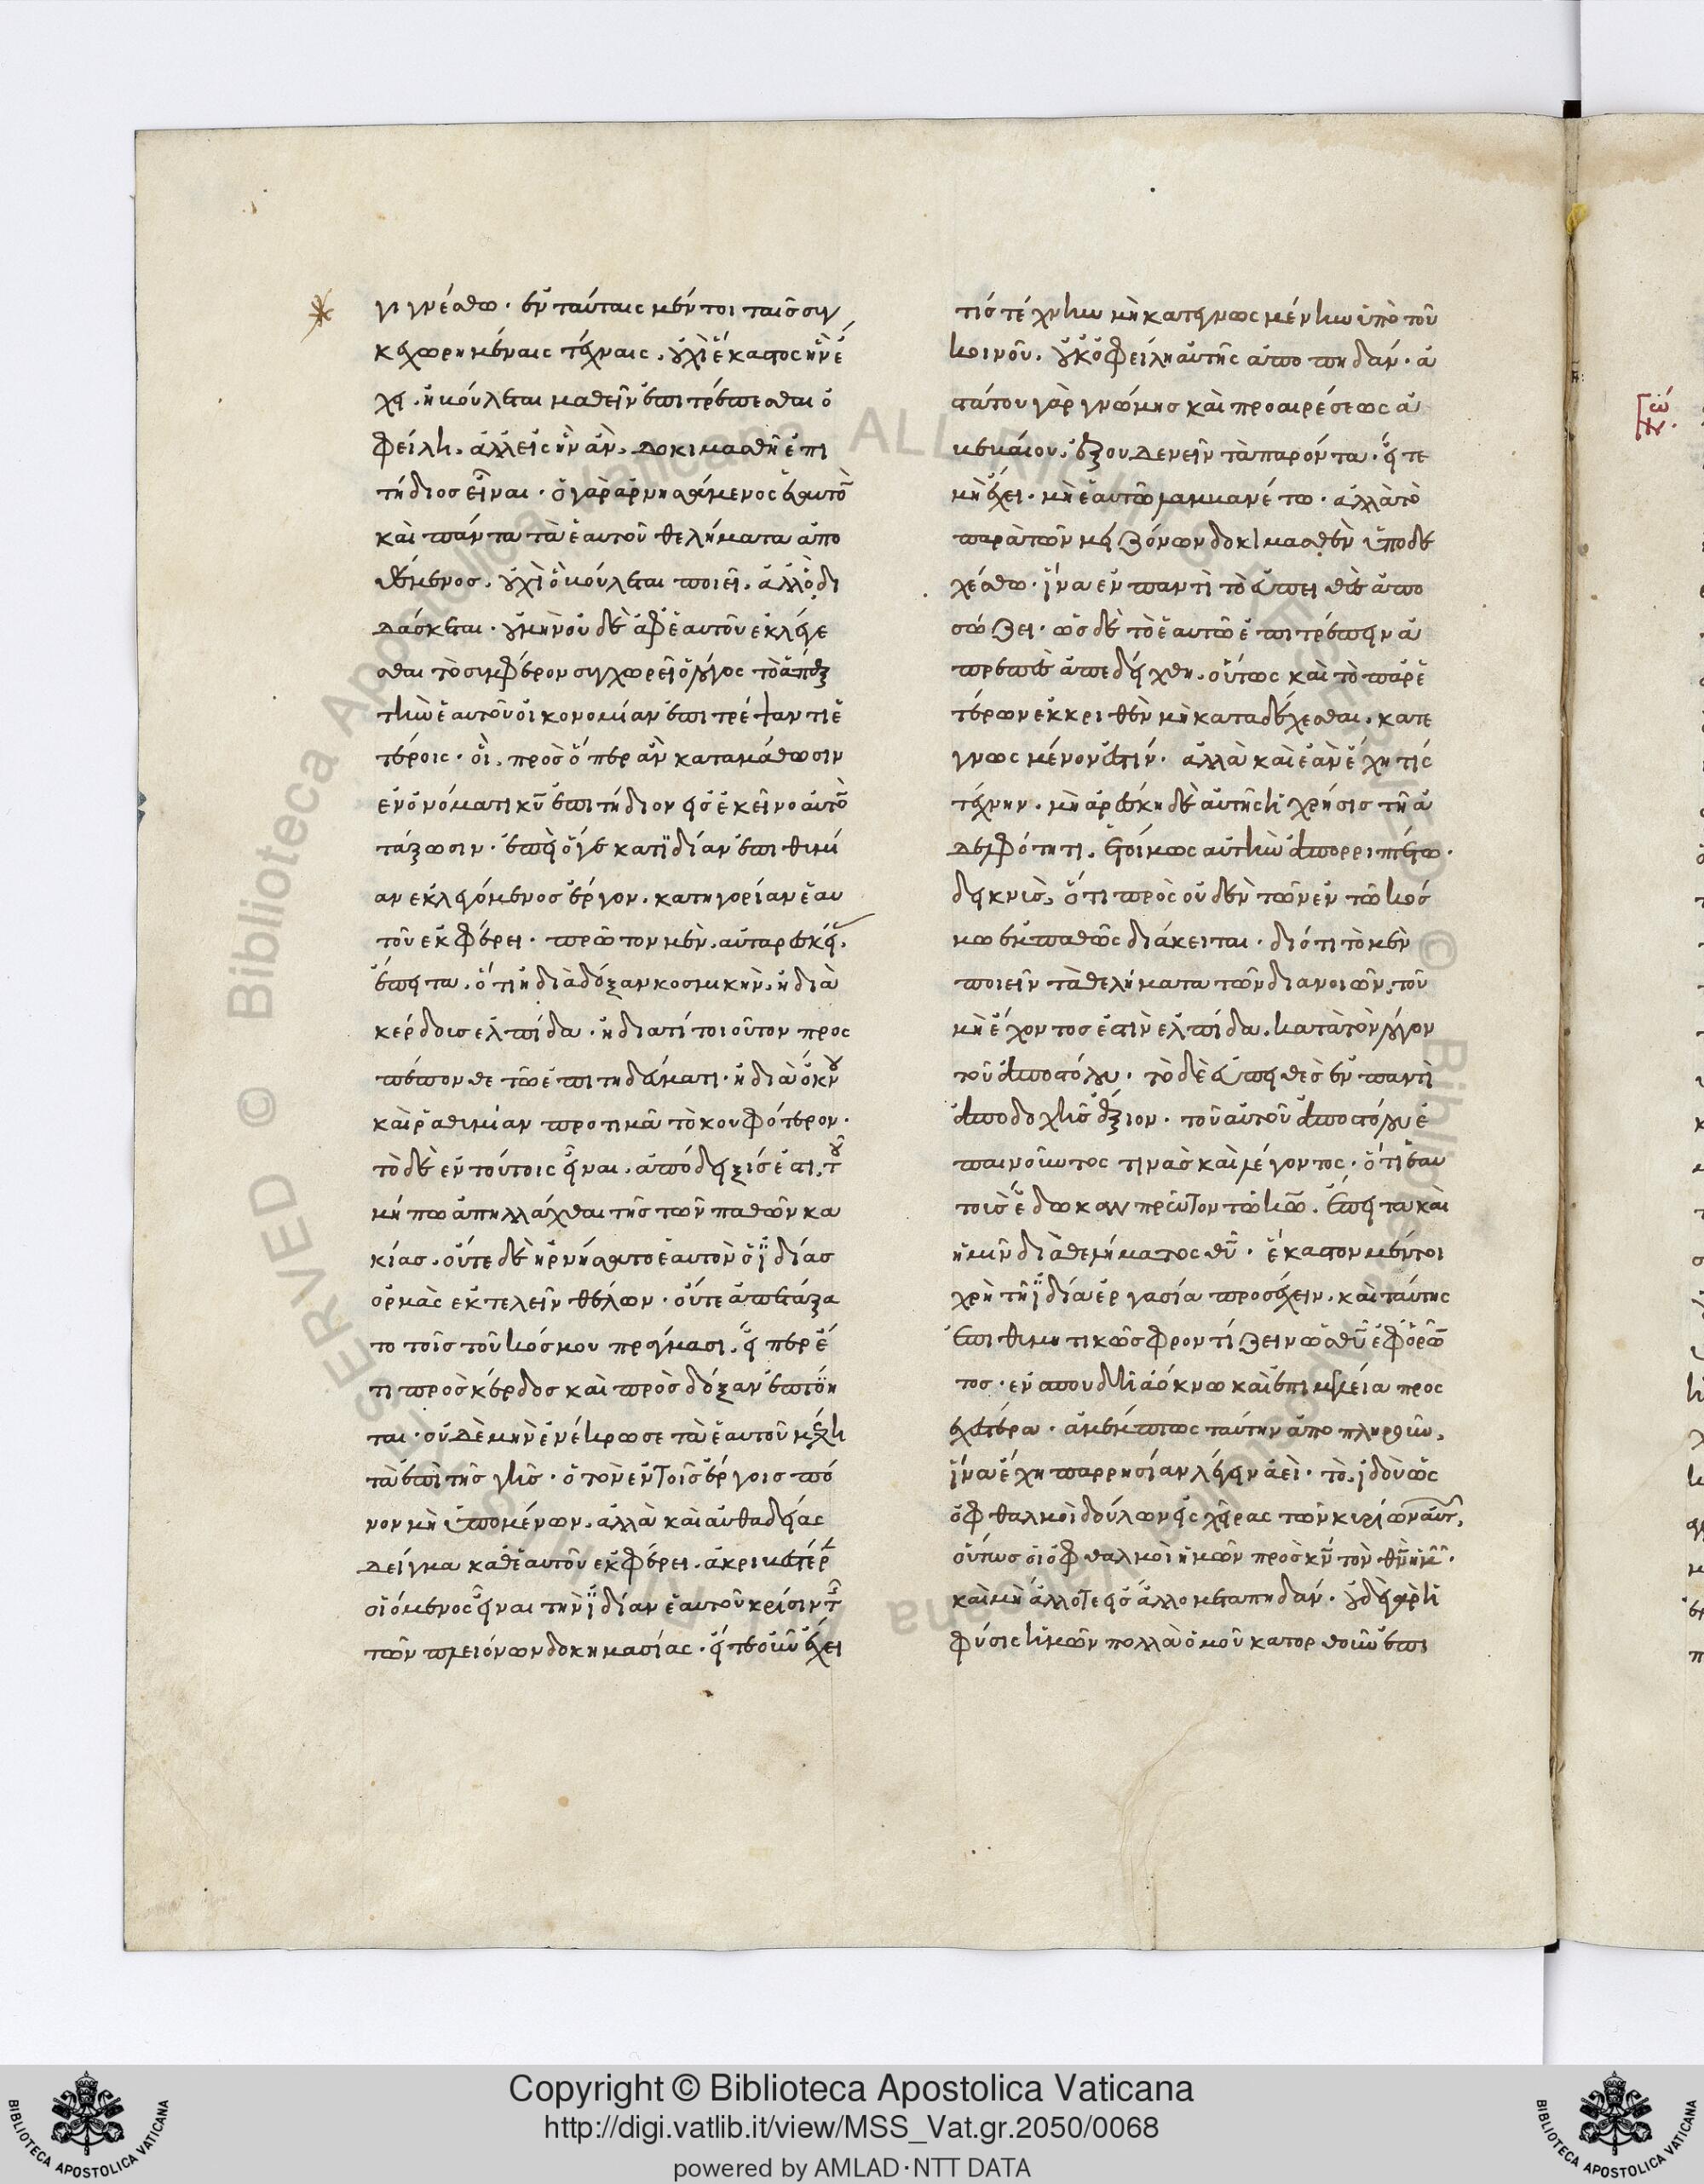 γιγνέσθω· ἐν ταύταις μέντοι ταῖς συγ
κεχωρημέναις τέχναις, οὐχὶ ἕκαστος ἣν ἔ
χει, ἢ βούλεται μαθεῖν ἐπιτρέπεσθαι ὀ
φείλη, ἀλλ' εἰς ἣν ἂν, δοκιμασθῆ ἐπι
τήδιος εἶναι· ὁ γὰρ ἀρνησάμενος ἑαυτὸ
καὶ πάντα τὰ ἑαυτοῦ θελήματα ἀπο
θέμενος, οὐχὶ ὃ βούλεται ποιεῖ, ἀλλ' ὃ δι
δάσκεται· οὐ μὴν οὐδὲ ἀφ' ἑαυτοῦ ἐκλέγε
σθαι τὸ συμφέρον συγχωρεῖ ὁ λόγος τὸ ἅπαξ
τὴν ἑαυτοῦ οἰκονομίαν ἐπιτρέψαντι ἑ
τέροις· οἳ, πρὸς ὅπερ ἂν καταμάθωσιν
ἐν ὀνόματι κυ ἐπιτήδιον εἰς ἐκεῖνο αὐτὸ
τάξωσιν· ἐπεὶ ὅ γε κατ' ἰδίαν ἐπιθυμί
αν ἐκλεγόμενος ἔργον, κατηγορίαν ἑαυ
τοῦ ἐκφέρει· πρῶτον μὲν, αὐταρεσκεί,
ἔπειτα, ὅτι ἢ διὰ δόξαν κοσμικὴν, ἢ διὰ
κέρδους ἐλπίδα· ἢ διά τι τοιοῦτον προς
πέπονθε τῶ ἐπιτηδεύματι· ἢ δι' ὄκνου
καὶ ῥαθυμίαν προτιμᾶ τὸ κουφότερον·
τὸ δὲ ἐν τούτοις εἶναι, ἀπόδειξίς ἐστι, τοῦ
μήπω ἀπηλλάχθαι τῆς τῶν παθῶν κα
κίας, οὔτε δὲ ἠρνήσατο ἑαυτὸν ὁ ἰδίας
ὁρμὰς ἐκτελεῖν θέλων· οὔτε ἀπετάξα
το τοῖς τοῦ κόσμου πράγμασι, εἴπερ ἔ
τι πρὸς κέρδος καὶ πρὸς δόξαν ἐπτόη
ται· οὐδὲ μὴν ἐνέκρωσε τὰ ἑαυτοῦ μέλη
τὰ ἐπὶ τῆς γῆς· ὁ τὸν ἐν τοῖς ἔργοις πό
νον μὴ ὑπομένων, ἀλλὰ καὶ αὐθαδείας
δεῖγμα καθ' ἑαυτοῦ ἐκφέρει, ἀκριβεστέρ
οἰόμενος εἶναι τὴν ἰδίαν ἑαυτοῦ κρίσιν τ
τῶν πλειόνων δοκημασίας· εἴτε οὖν ἔχει
τις τέχνην μὴ κατεγνωσμένην ὑπὸ τοῦ
κοινοῦ, οὐκ ὀφείλη αὐτῆς ἀποπηδᾶν· ἀ
στάτου γὰρ γνώμης καὶ προαιρέσεως ἀ
βεβαίου, ἐξουδενεῖν τὰ παρόντα· εἴτε
μὴ ἔχει, μὴ ἑαυτῶ λαμβανέτω· ἀλλὰ τὸ
παρὰ τῶν μειζόνων δοκιμασθὲν ὑποδε
χέσθω· ἵνα ἐν παντὶ τὸ εὐπειθὲς ἀπο
σώζει· ὡς δὲ τὸ ἑαυτῶ ἐπιτρέπειν ἀ
πρεπὲς ἀπεδείχθη, οὕτως καὶ τὸ παρ' ἑ
τέρων ἐκκριθὲν μὴ καταδέχεσθαι, κατε
γνωσμένον ἐστίν· ἀλλὰ καὶ ἐὰν ἔχη τίς
τέχνην, μὴ ἀρέσκη δὲ αὐτῆς ἡ χρῆσις τῆ ἀ
δελφότητι, ἑτοίμως αὐτὴν ἀπορριπτέτω·
δεικνὺς, ὅτι πρὸς οὐδὲν τῶν ἐν τῶ κόσ
μω ἐμπαθῶς διάκειται· διότι τὸ μὲν
ποιεῖν τὰ θελήματα τῶν διανοιῶν, τοῦ
μὴ ἔχοντος ἐστὶν ἐλπίδα, κατὰ τὸν λόγον
τοῦ ἀποστόλου· τὸ δὲ εὐπειθὲς ἐν παντὶ
ἀποδοχῆς ἄξιον· τοῦ αὐτοῦ ἀποστόλου ἐ
παινοῦντος τινας καὶ λέγοντος· ὅτι ἑαυ
τοὺς ἔδωκαν πρῶτον τῶ κω, ἔπειτα καὶ
ἡμῖν διὰ θελήματος θυ· ἕκαστον μέντοι
χρὴ τῆ ἰδία ἐργασία προσέχειν, καὶ ταύτης
ἐπιθυμητικῶς φροντίζειν ὡς θυ ἐφορῶν
τος· ἐν σπουδῆ ἀόκνω καὶ ἐπιμελεία προς
εχεστέρα· ἀμέμπτως ταύτην ἀποπληροῦν,
ἵνα ἔχη παρρησίαν λέγειν ἀεὶ· τὸ, ἰδοὺ ὡς
ὀφθαλμοὶ δούλων εἰς χεῖρας τῶν κυρίων αὐτ,
οὕτως οἱ ὀφθαλμοὶ ἡμῶν πρὸς κν τὸν θν ἡμ·
καὶ μὴ ἄλλοτε εἰς ἄλλο μεταπηδᾶν· οὐδὲ γὰρ ἡ
φύσις ἡμῶν πολλὰ ὁμοῦ κατορθοῦν ἐπι
Copyright © Biblioteca Apostolica Vaticana
http://digi.vatlib.it/view/MSS_Vat.gr.2050/0068
powered by AMLAD·NTT DATA